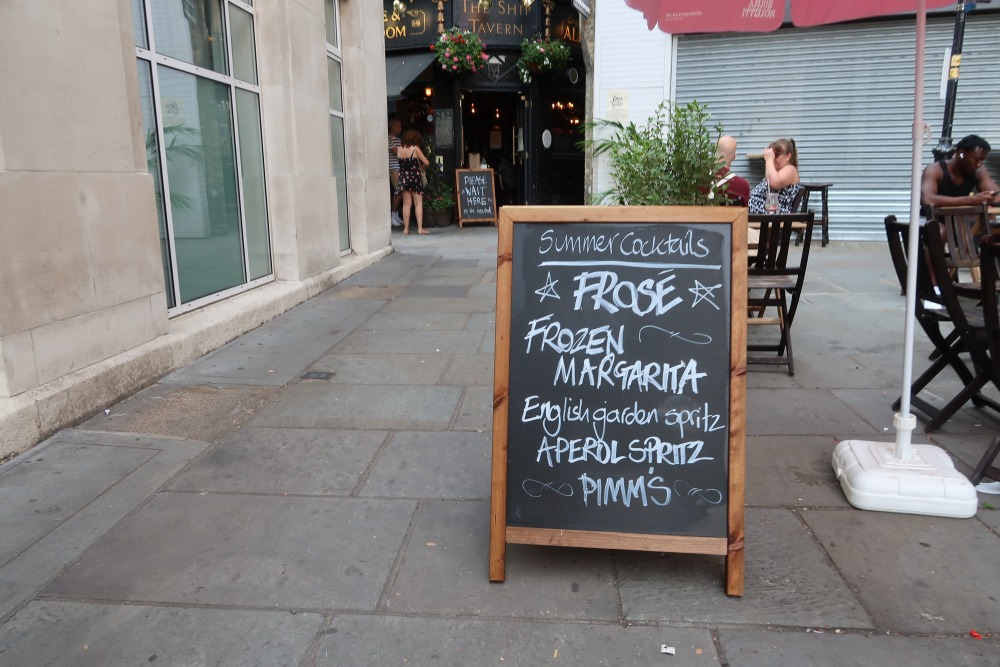 THE SHIP
TAVERN
OM
AL
PLEASE
WAIT
HERE
to be seated
Summer Cocktails
FROSÉ
FROZEN
MARGARITA
English garden spritz
APEROL SPRITZ
PIMM'S